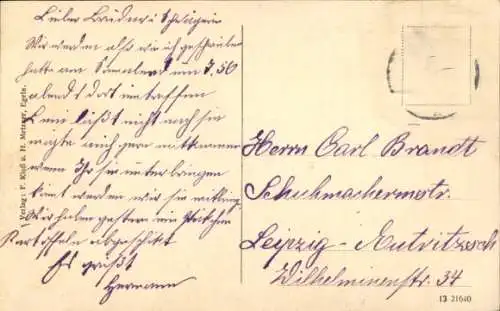 Lieber Bruder u Schwägerin
Wir werden also wie ich geschrieben
hatte am Sonnabend um 7,50
abends dort eintreffen
läßt nicht nach sie
möchte auch gern mitkommen
wenn Ihr sie unterbringen
könnt werden wir sie mitbringen
Wir haben gestern ein Säckchen
Kartoffeln abgeschickt
Es grüßt
Hermann
Verlag: F. Kloß u. H. Metzger, Egeln.
Herrn Carl Brandt
Schuhmachermstr.
Leipzig-Autritzsch
Wilhelminenstr. 34
13 21640